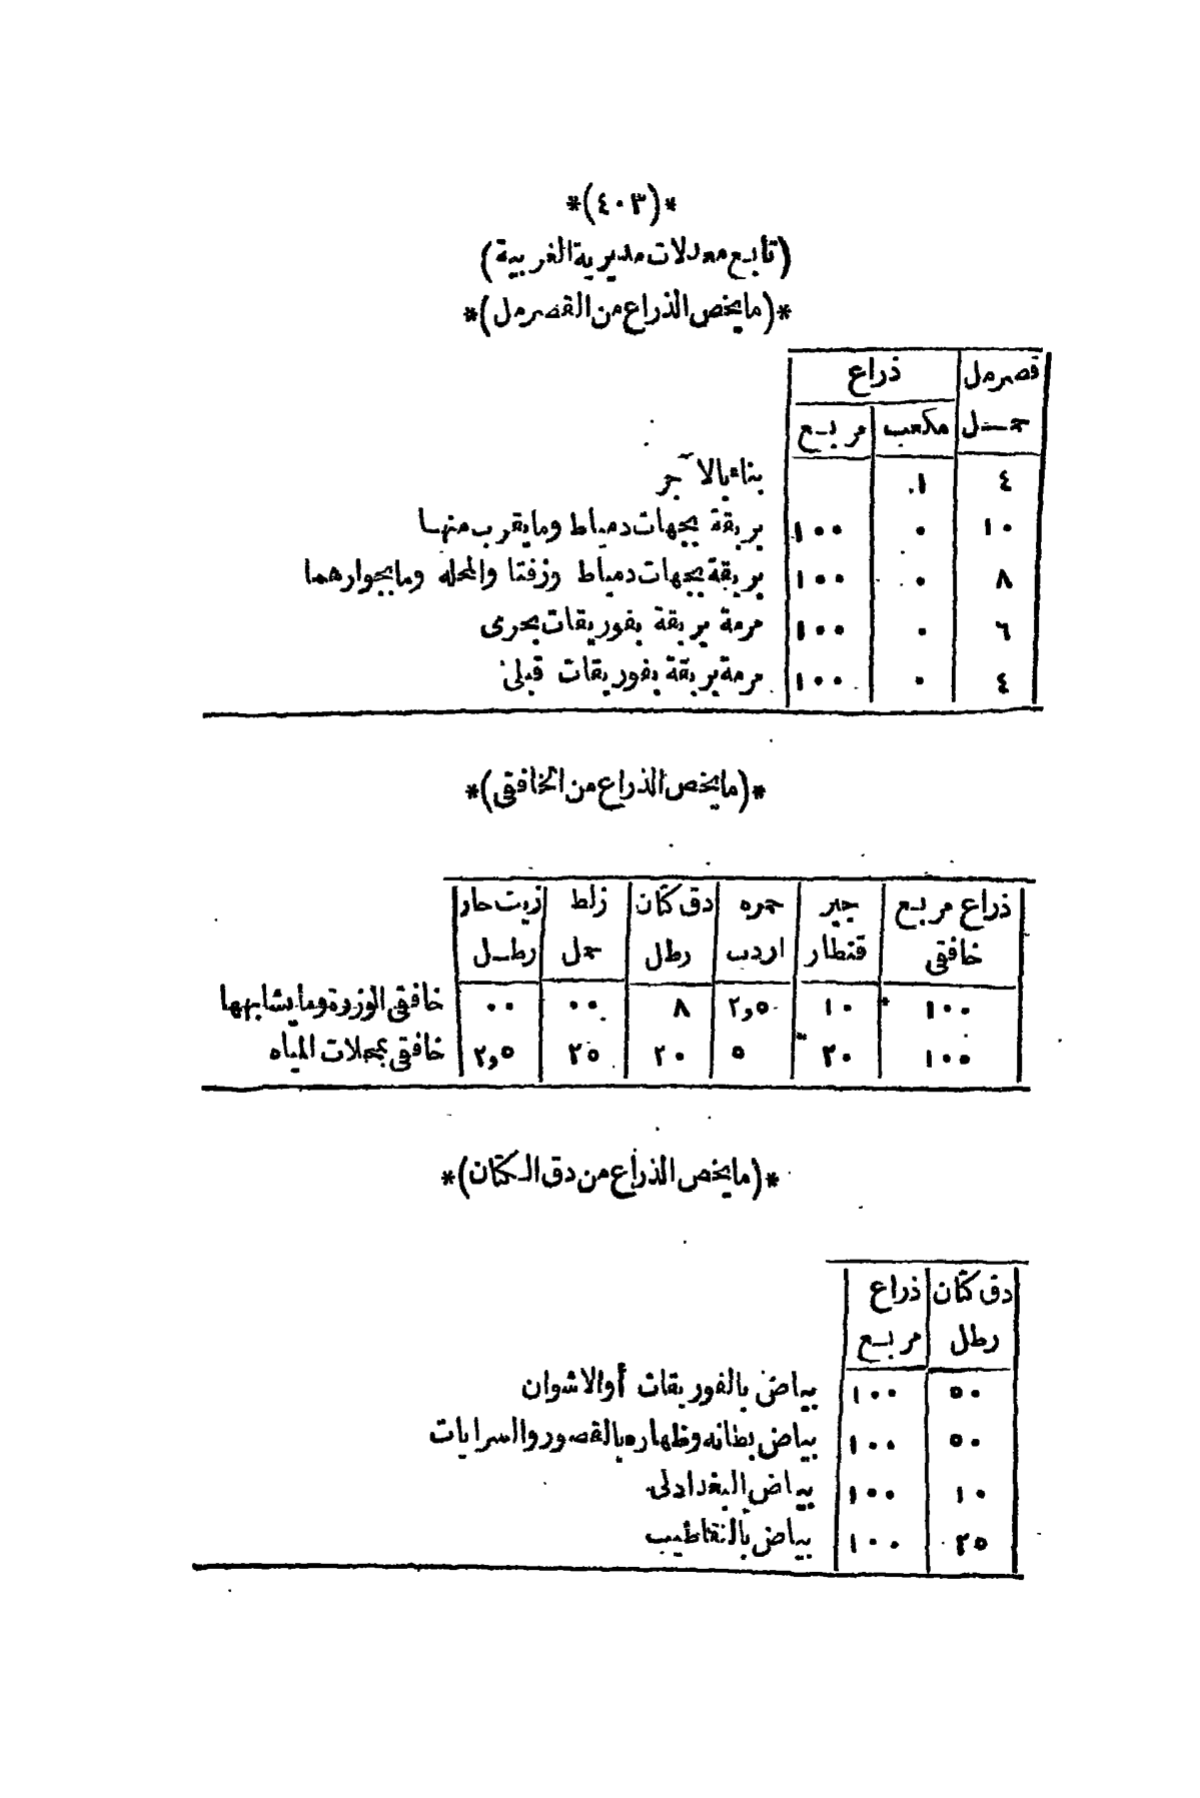 *(٤٠٣)*
(تابع معدلات مديرية الغربية)
*(ما يخص الذراع من القصرمل)*
قصرمل ذراع
حمل مكعب مربع
٤ ١٠ بناء بالآجر
١٠ ٠ ١٠٠ بريقة بجهات دمياط وما يقرب منها
٨ ٠ ١٠٠ بريقة بجهات دمياط وزفتا والمحله وما بجوارهما
٦ ٠ ١٠٠ مرمة بريقة بفوريقات بحرى
٤ ٠ ١٠٠ مرمة بريقة بفوريقات قبلى
*(ما يخص الذراع من الخافقى)*
ذراع مربع جير حمره دق كتان زلط زيت حار
خافقى قنطار اردب رطل حمل رطل
١٠٠ ١٠ ٢٫٥ ٨ ٠٠ ٠٠ خافقى الوزرة وما يشابهها
١٠٠ ٢٠ ٥ ٢٠ ٢٥ ٢٫٥ خافقى بمحلات المياه
*(ما يخص الذراع من دق الكتان)*
دق كتان ذراع
رطل مربع
٥٠ ١٠٠ بياض بالفوريقات أو الاشوان
٥٠ ١٠٠ بياض بطانه وظهاره بالقصور والسرايات
١٠ ١٠٠ بياض البغدادلى
٢٥ ١٠٠ بياض بالنقاطيب